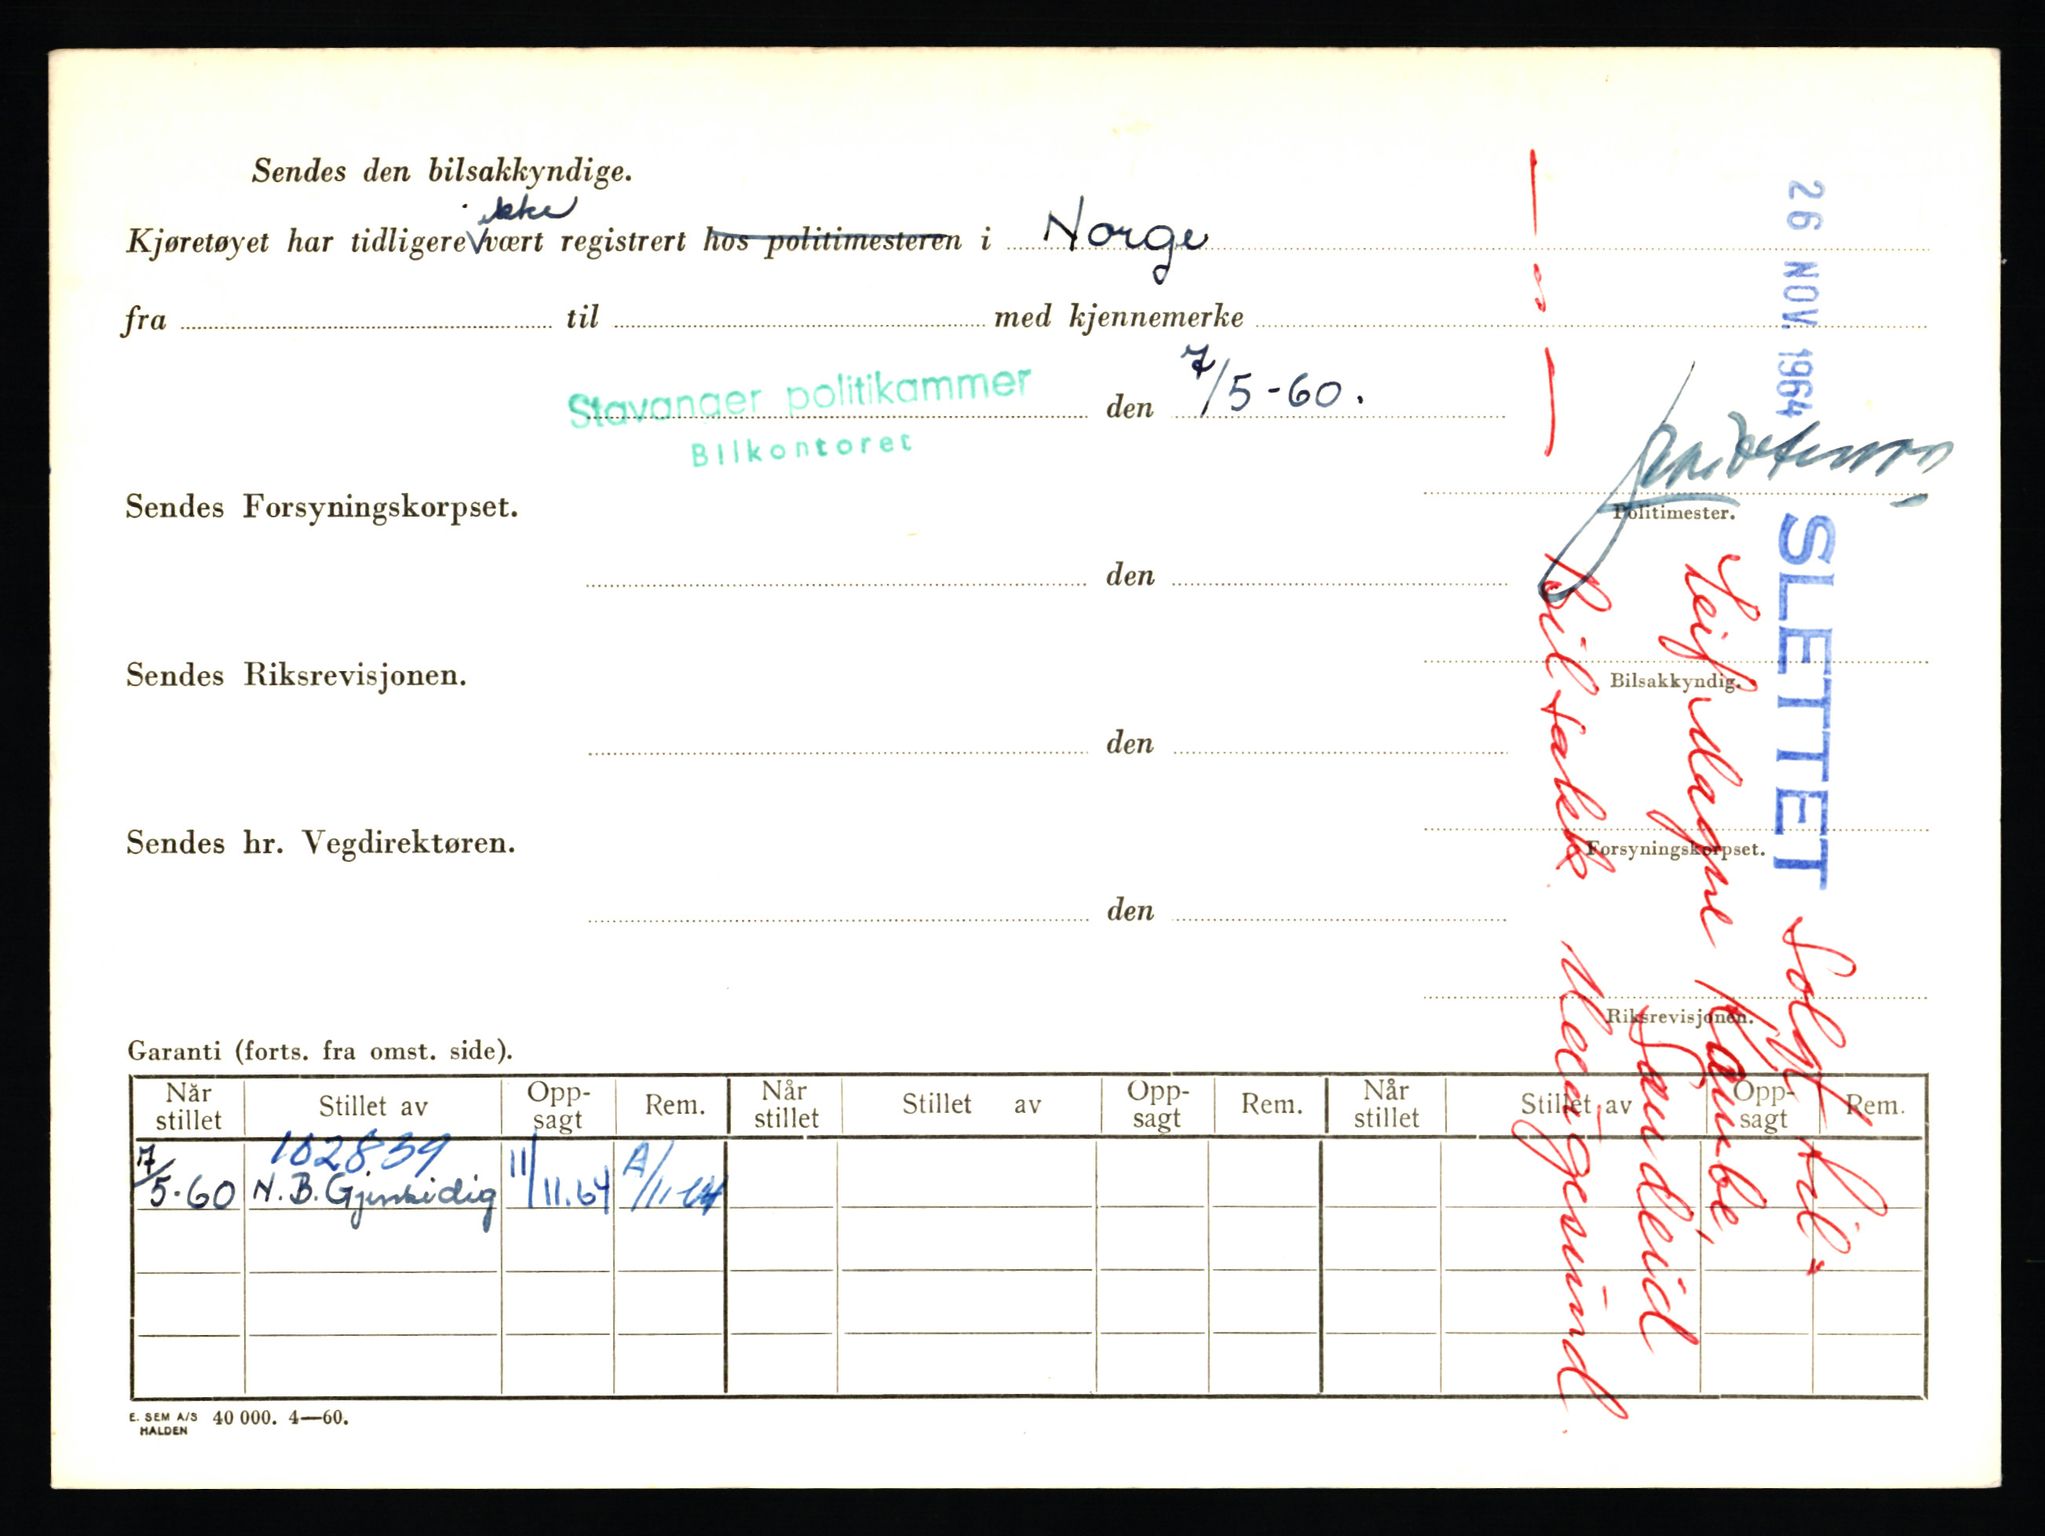 Sendes den bilsakkyndige.
ikke
Kjøretøyet har tidligere vært registrert hos politimesteren i Norge
fra til med kjennemerke
Stavanger politikammer den 7/5-60.
Bilkontoret
Sendes Forsyningskorpset.
Politimester.
den
Sendes Riksrevisjonen.
Bilsakkyndig.
den
Sendes hr. Vegdirektøren.
Forsyningskorpset.
den
Riksrevisjonen.
Garanti (forts. fra omst. side).
Når stillet Stillet av Opp-sagt Rem. Når stillet Stillet av Opp-sagt Rem. Når stillet Stillet av Opp-sagt Rem.
102839
7/5-60 N.B. Gjenkidig 11/11.64 A/11-64
E. SEM A/S 40 000. 4—60.
HALDEN
26 NOV. 1964 SLETTET Solgt til
Leif Magne Kambe,
Sandeid
Bilsakk Haugesund